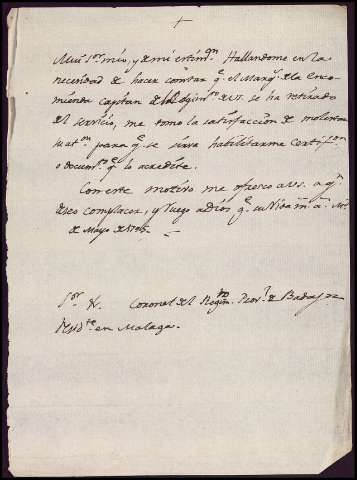 Muy Sor. mio, y de mi estimn. Hallandome en la
necesidad de hacer constar q. el Marqs. de la Enco-
mienda Capitan de Regimto. de VS. se ha retirado
del servicio, me tomo la satisfaccion de molestar
su atn. para q. se sirva habilitarme Certifon.
o documto. q. lo acredite.
Con este motivo me ofresco a VS. a qn.
deseo complacer, y ruego a Dios q. su Vida ms. as.
de Mayo de
Sor. Coronel del Regimto. Provl. de Badajoz
Residte. en Malaga.